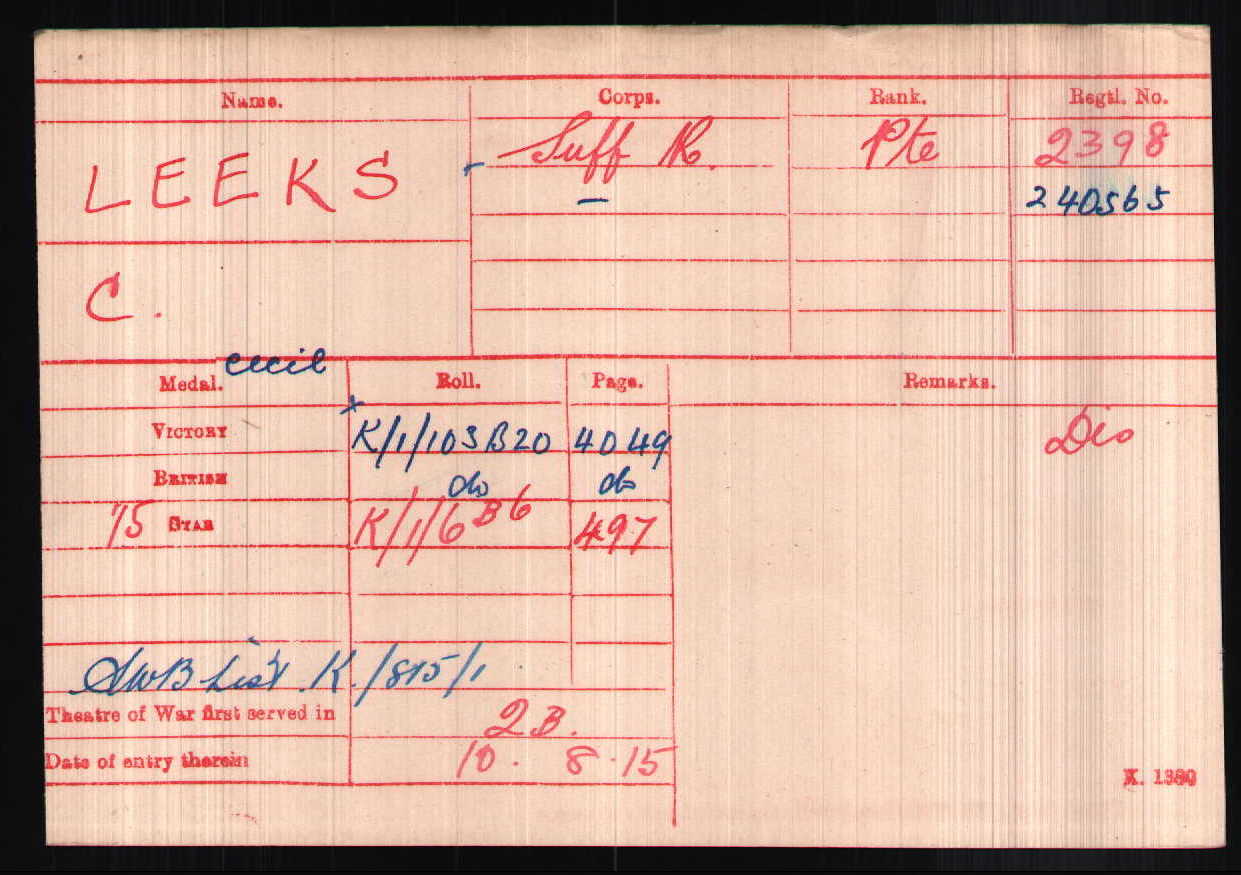 Name. Corps. Rank. Regtl. No.
LEEKS Suff R. Pte 2398
– 240565
C.
Cecil
Medal. Roll. Page. Remarks.
VICTORY K/1/103B20 4049 Dis
BRITISH do do
15 STAR K/1/6B6 497
SWB List K./815/1
Theatre of War first served in 2B.
Date of entry therein 10. 8.15
K. 1380